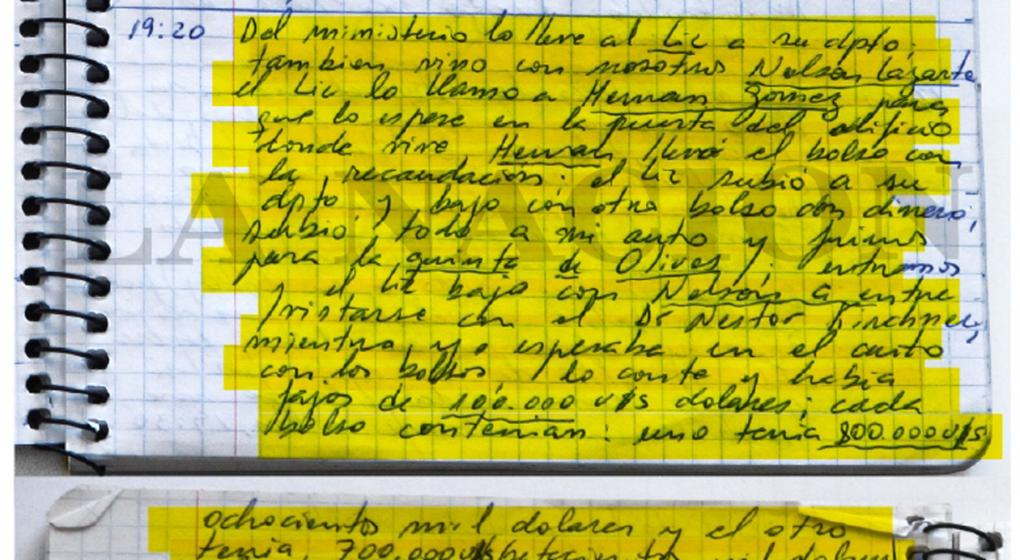 19:20 Del mimisterio lo lleve al Lic a su dpto;
tambien vino con nosotros Nelson Lazarte
el Lic lo llamo a Hernan Gomez para
que lo espere en la puerta del edificio
donde vive Hernan llevó el bolso con
la recaudación; el Lic subió a su
dpto y bajo con otro bolso con dinero;
subió todo a mi auto y fuimos
para la quinta de Olivos; entramos
y el Lic bajo con Nelson a entre
vistarse con el Dr Nestor Kirchner;
mientra yo esperaba en el auto
con los bolsos, lo conte y habia
fajos de 100.000 u$s dolares; cada
bolso contenian: uno tenia 800.000 u$s
LA NACION
ochociento mil dolares y el otro
tenia 700.000 u$s setecientos mil dolares